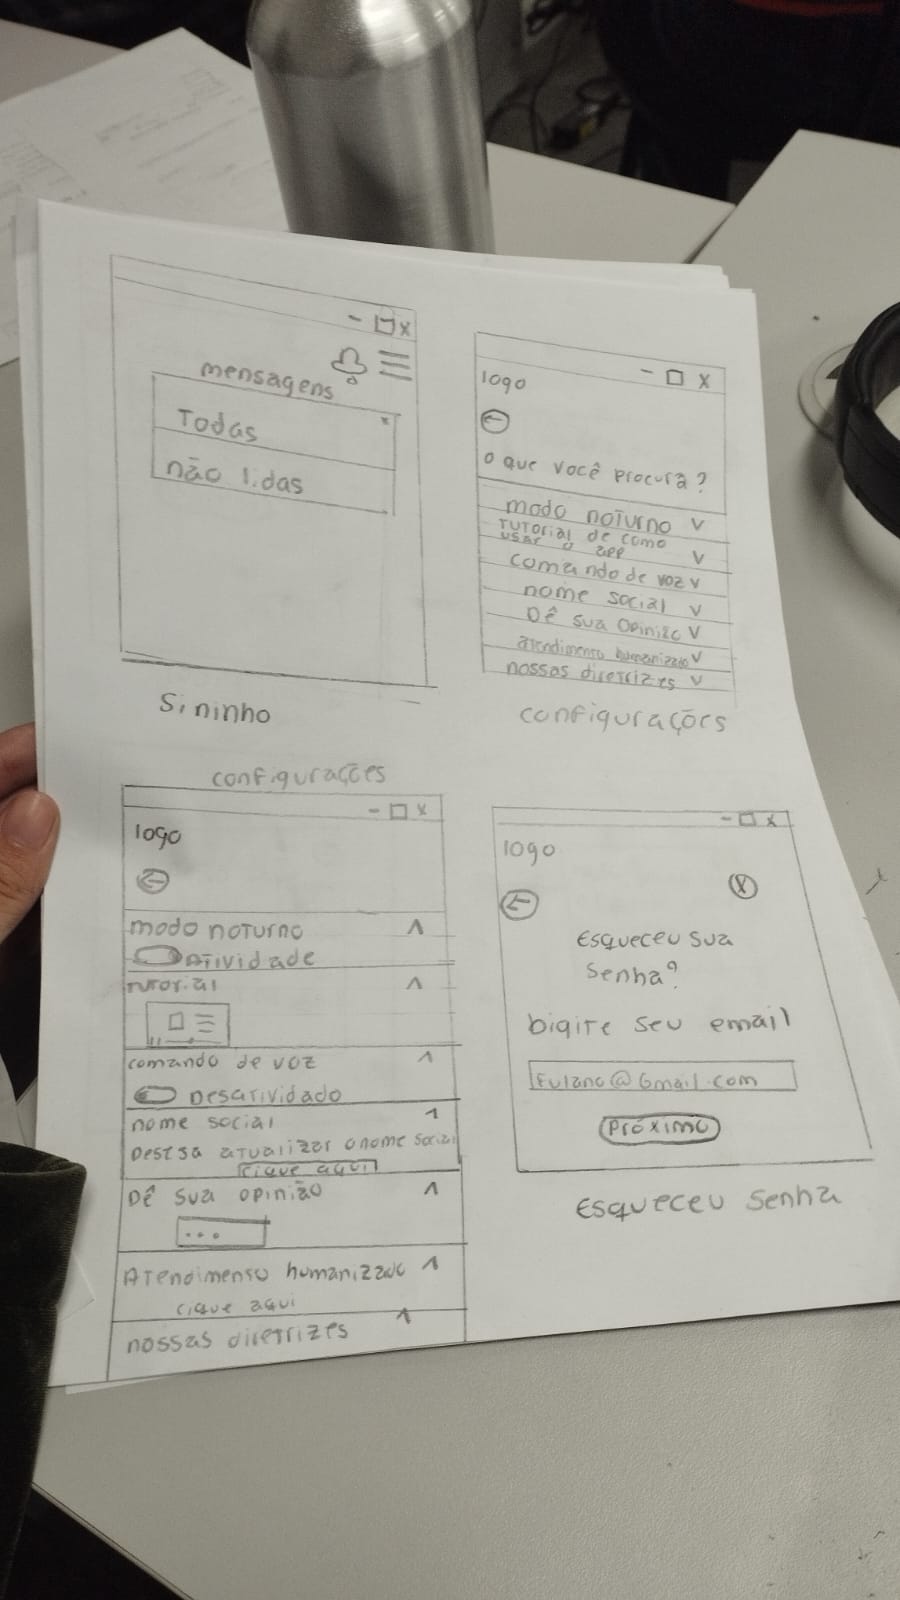 mensagens
Todas
não lidas
Sininho
logo
o que você procura?
modo noturno
Tutorial de como
usar o app
comando de voz
nome social
Dê sua opinião
atendimento humanizado
nossas diretrizes
configurações
configurações
logo
modo noturno
Atividade
Tutorial
comando de voz
Desatividado
nome social
Deseja atualizar o nome social
clique aqui
Dê sua opinião
...
Atendimento humanizado
clique aqui
nossas diretrizes
logo
Esqueceu sua
senha?
Digite seu email
Fulano@Gmail.com
Próximo
Esqueceu senha